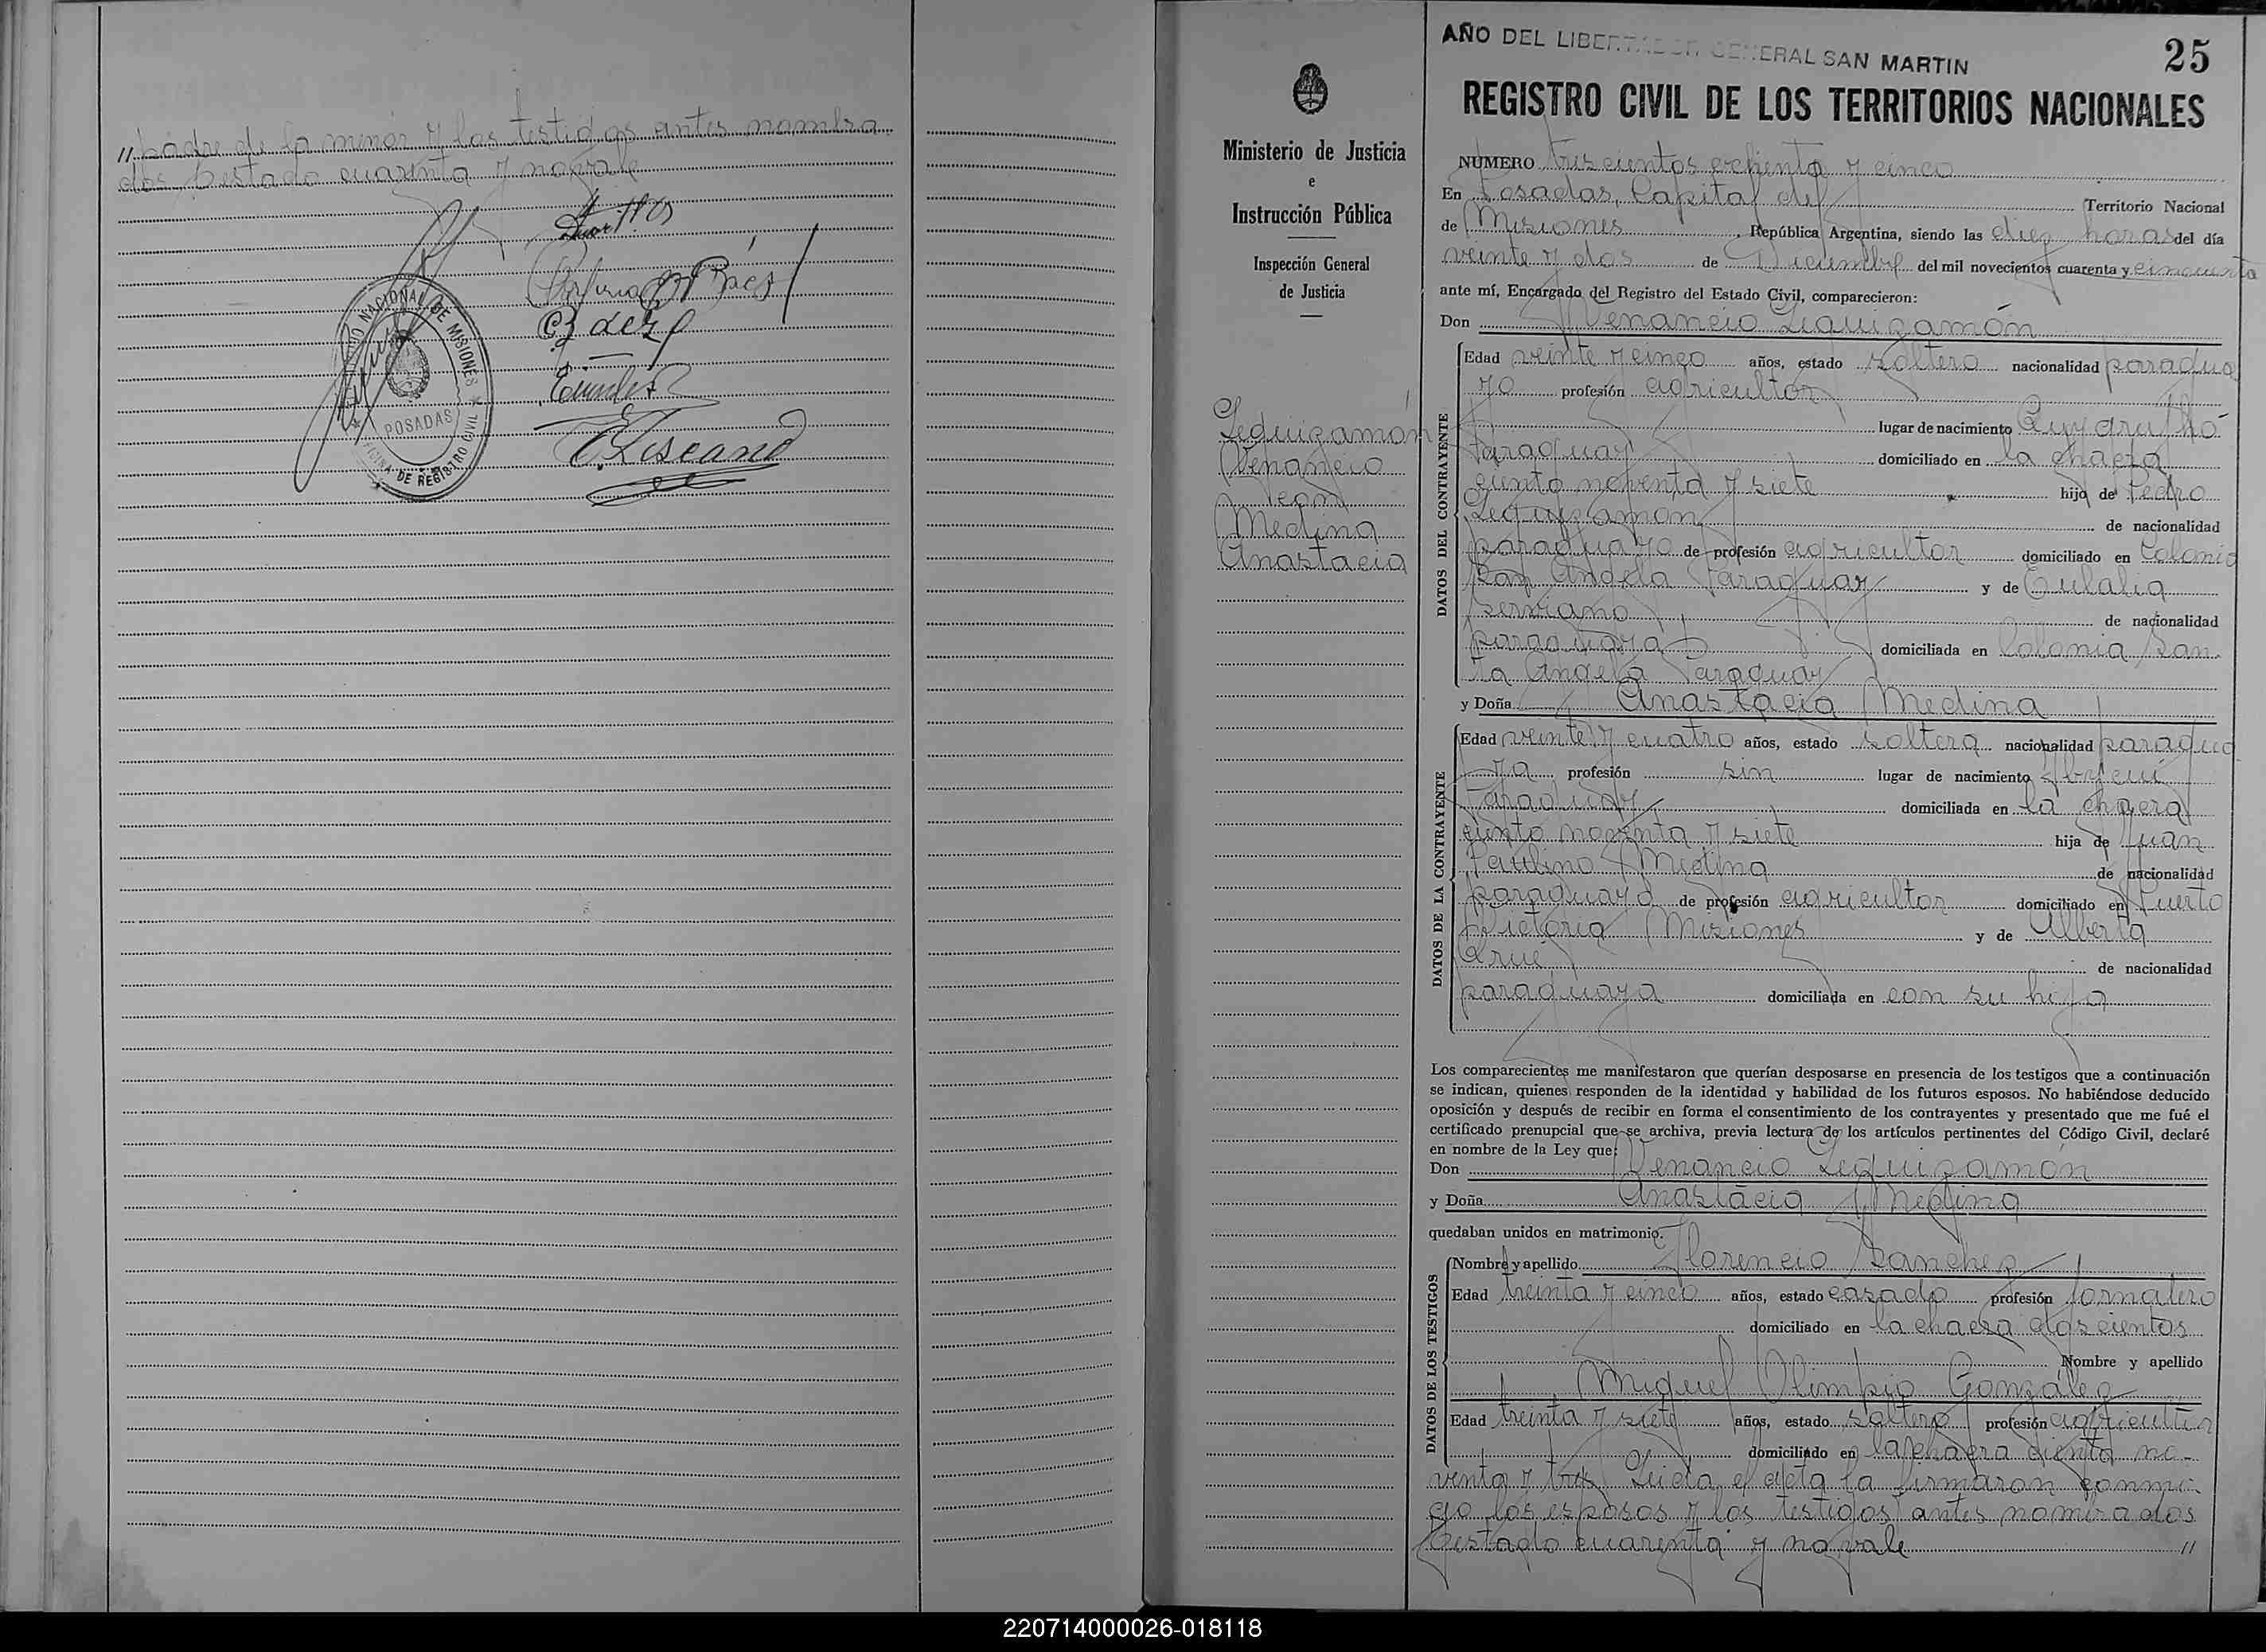 " padre de la menor y los testigos antes nombra
dos. Testado cuarenta y no vale
Baez
POSADAS
AÑO DEL LIBERTADOR GENERAL SAN MARTIN
25
REGISTRO CIVIL DE LOS TERRITORIOS NACIONALES
Ministerio de Justicia
e
Instrucción Pública
Inspección General
de Justicia
Leguizamón
Venancio
con
Medina
Anastacia
NÚMERO trescientos ochenta y cinco
En Posadas, Capital del Territorio Nacional
de Misiones, República Argentina, siendo las diez horas del día
veinte y dos de Diciembre del mil novecientos cuarenta y cincuenta
ante mí, Encargado del Registro del Estado Civil, comparecieron:
Don Venancio Leguizamón
DATOS DEL CONTRAYENTE
Edad veinte y cinco años, estado soltero nacionalidad paragua
yo profesión agricultor
lugar de nacimiento
Paraguay domiciliado en la chacra
ciento noventa y siete hijo de Pedro
Leguizamón de nacionalidad
paraguayo de profesión agricultor domiciliado en Colonia
San Angela Paraguay y de Eulalia
Serviano de nacionalidad
paraguaya domiciliada en Colonia San
ta Angela Paraguay
y Doña Anastacia Medina
DATOS DE LA CONTRAYENTE
Edad veinte y cuatro años, estado soltera nacionalidad paragua
ya profesión sin lugar de nacimiento
Paraguay domiciliada en la chacra
ciento noventa y siete hija de Juan
Paulino Medina de nacionalidad
paraguayo de profesión agricultor domiciliado en Puerto
Victoria Misiones y de Alberta
de nacionalidad
paraguaya domiciliada en con su hija
Los comparecientes me manifestaron que querían desposarse en presencia de los testigos que a continuación
se indican, quienes responden de la identidad y habilidad de los futuros esposos. No habiéndose deducido
oposición y después de recibir en forma el consentimiento de los contrayentes y presentado que me fué el
certificado prenupcial que se archiva, previa lectura de los artículos pertinentes del Código Civil, declaré
en nombre de la Ley que:
Don Venancio Leguizamón
y Doña Anastacia Medina
quedaban unidos en matrimonio.
DATOS DE LOS TESTIGOS
Nombre y apellido Florencio Sanchez
Edad treinta y cinco años, estado casado profesión jornalero
domiciliado en la chacra doscientos
Nombre y apellido
Miguel Olimpio González
Edad treinta y siete años, estado soltero profesión agricultor
domiciliado en la chacra ciento no-
venta y tres Leida el acta la firmaron conmi
go los esposos y los testigos antes nombrados
Testado cuarenta y no vale "
220714000026-018118